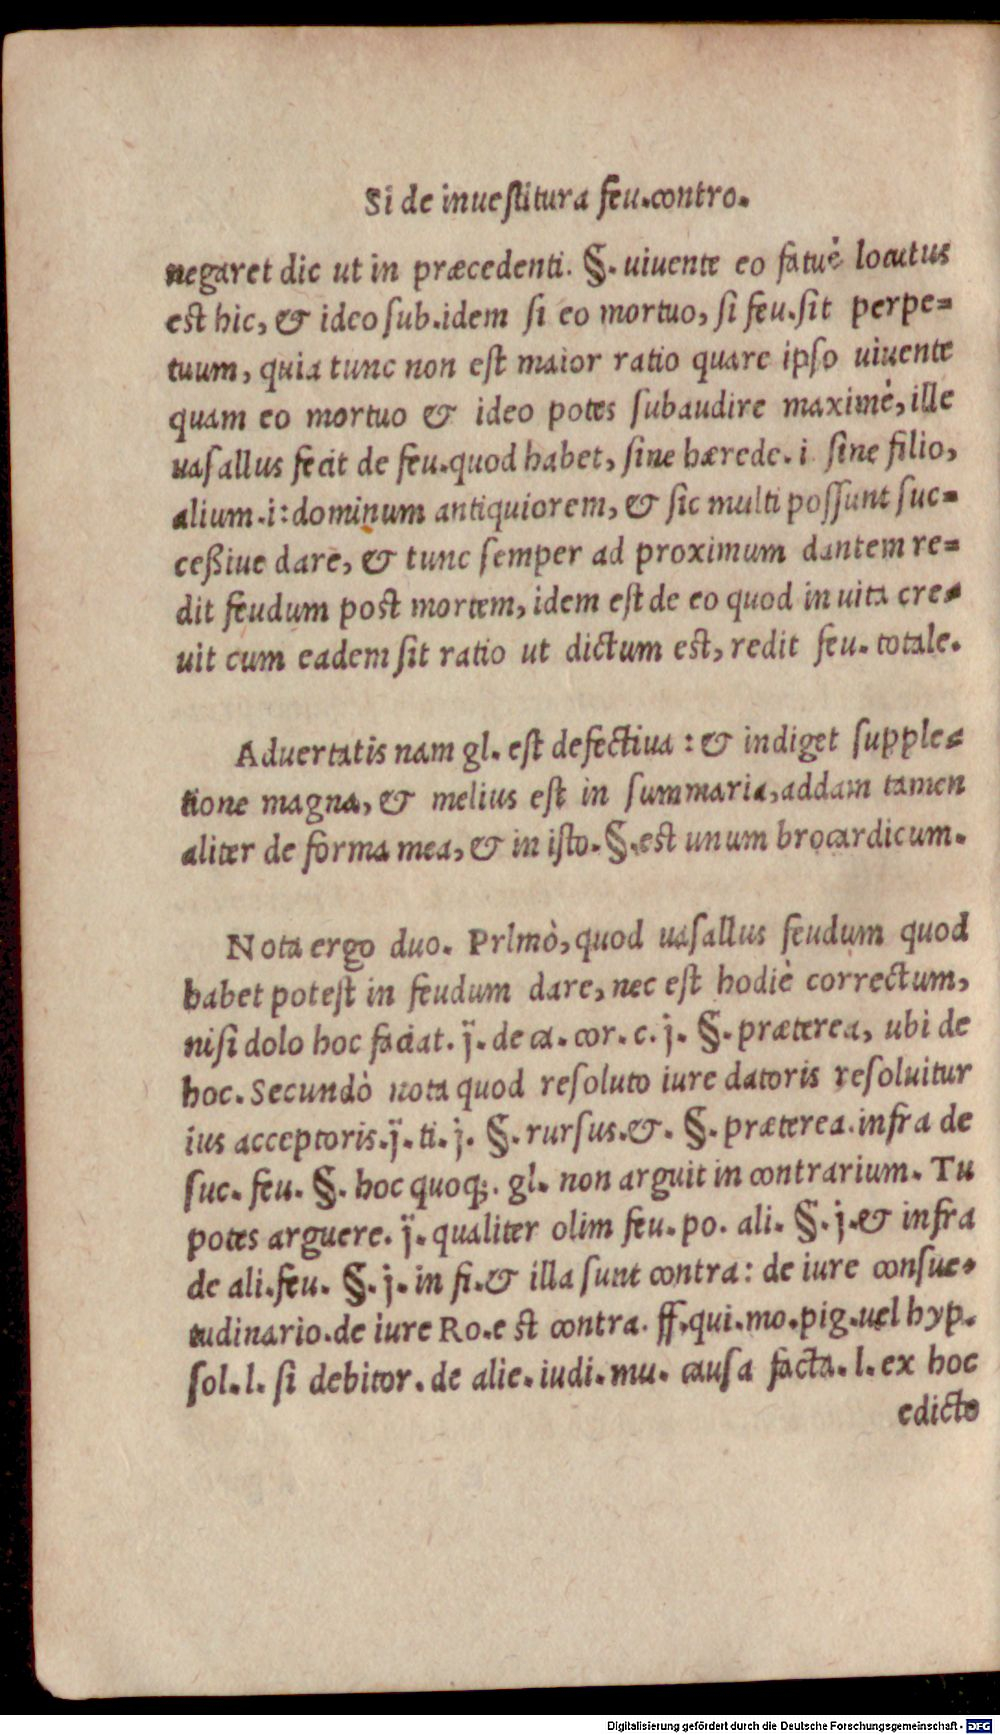 Si de inueſtitura feu.contro.
negaret dic ut in præcedenti. §. uiuente eo fatuè locutus
est hic, & ideo ſub.idem ſi eo mortuo, ſi feu.ſit perpe=
tuum, quia tunc non eſt maior ratio quare ipſo uiuente
quam eo mortuo & ideo potes ſubaudire maximè, ille
uaſallus fecit de feu.quod habet, ſine hærede. i. ſine filio,
alium.i: dominum antiquiorem, & ſic multi poſſunt ſuc=
ceßiue dare, & tunc ſemper ad proximum dantem re=
dit feudum post mortem, idem eſt de eo quod in uita cre=
uit cum eadem ſit ratio ut dictum est, redit feu. totale.
Aduertatis nam gl. eſt defectiua : & indiget ſupple=
tione magna, & melius eſt in ſummaria, addam tamen
aliter de forma mea, & in iſto. §. est unum brocardicum.
Nota ergo duo. Prlmò, quod uaſallus feudum quod
habet poteſt in feudum dare, nec eſt hodiè correctum,
niſi dolo hoc faciat. ÿ. de ca. cor. c. j. §. præterea, ubi de
hoc. Secundò nota quod reſoluto iure datoris reſoluitur
ius acceptoris. ÿ. ti. j. §. rurſus. &. §. præterea. infra de
ſuc. feu. §. hoc quoq;. gl. non arguit in contrarium. Tu
potes arguere. ÿ. qualiter olim feu. po. ali. §. j. & infra
de ali. feu. §. j. in fi. & illa ſunt contra: de iure conſue=
tudinario. de iure Ro. e st contra. ff. qui. mo. pig. uel hyp.
ſol. l. ſi debitor. de alie. iudi. mu. cauſa facta. l. ex hoc
edicto
Digitalisierung gefördert durch die Deutsche Forschungsgemeinschaft - DFG